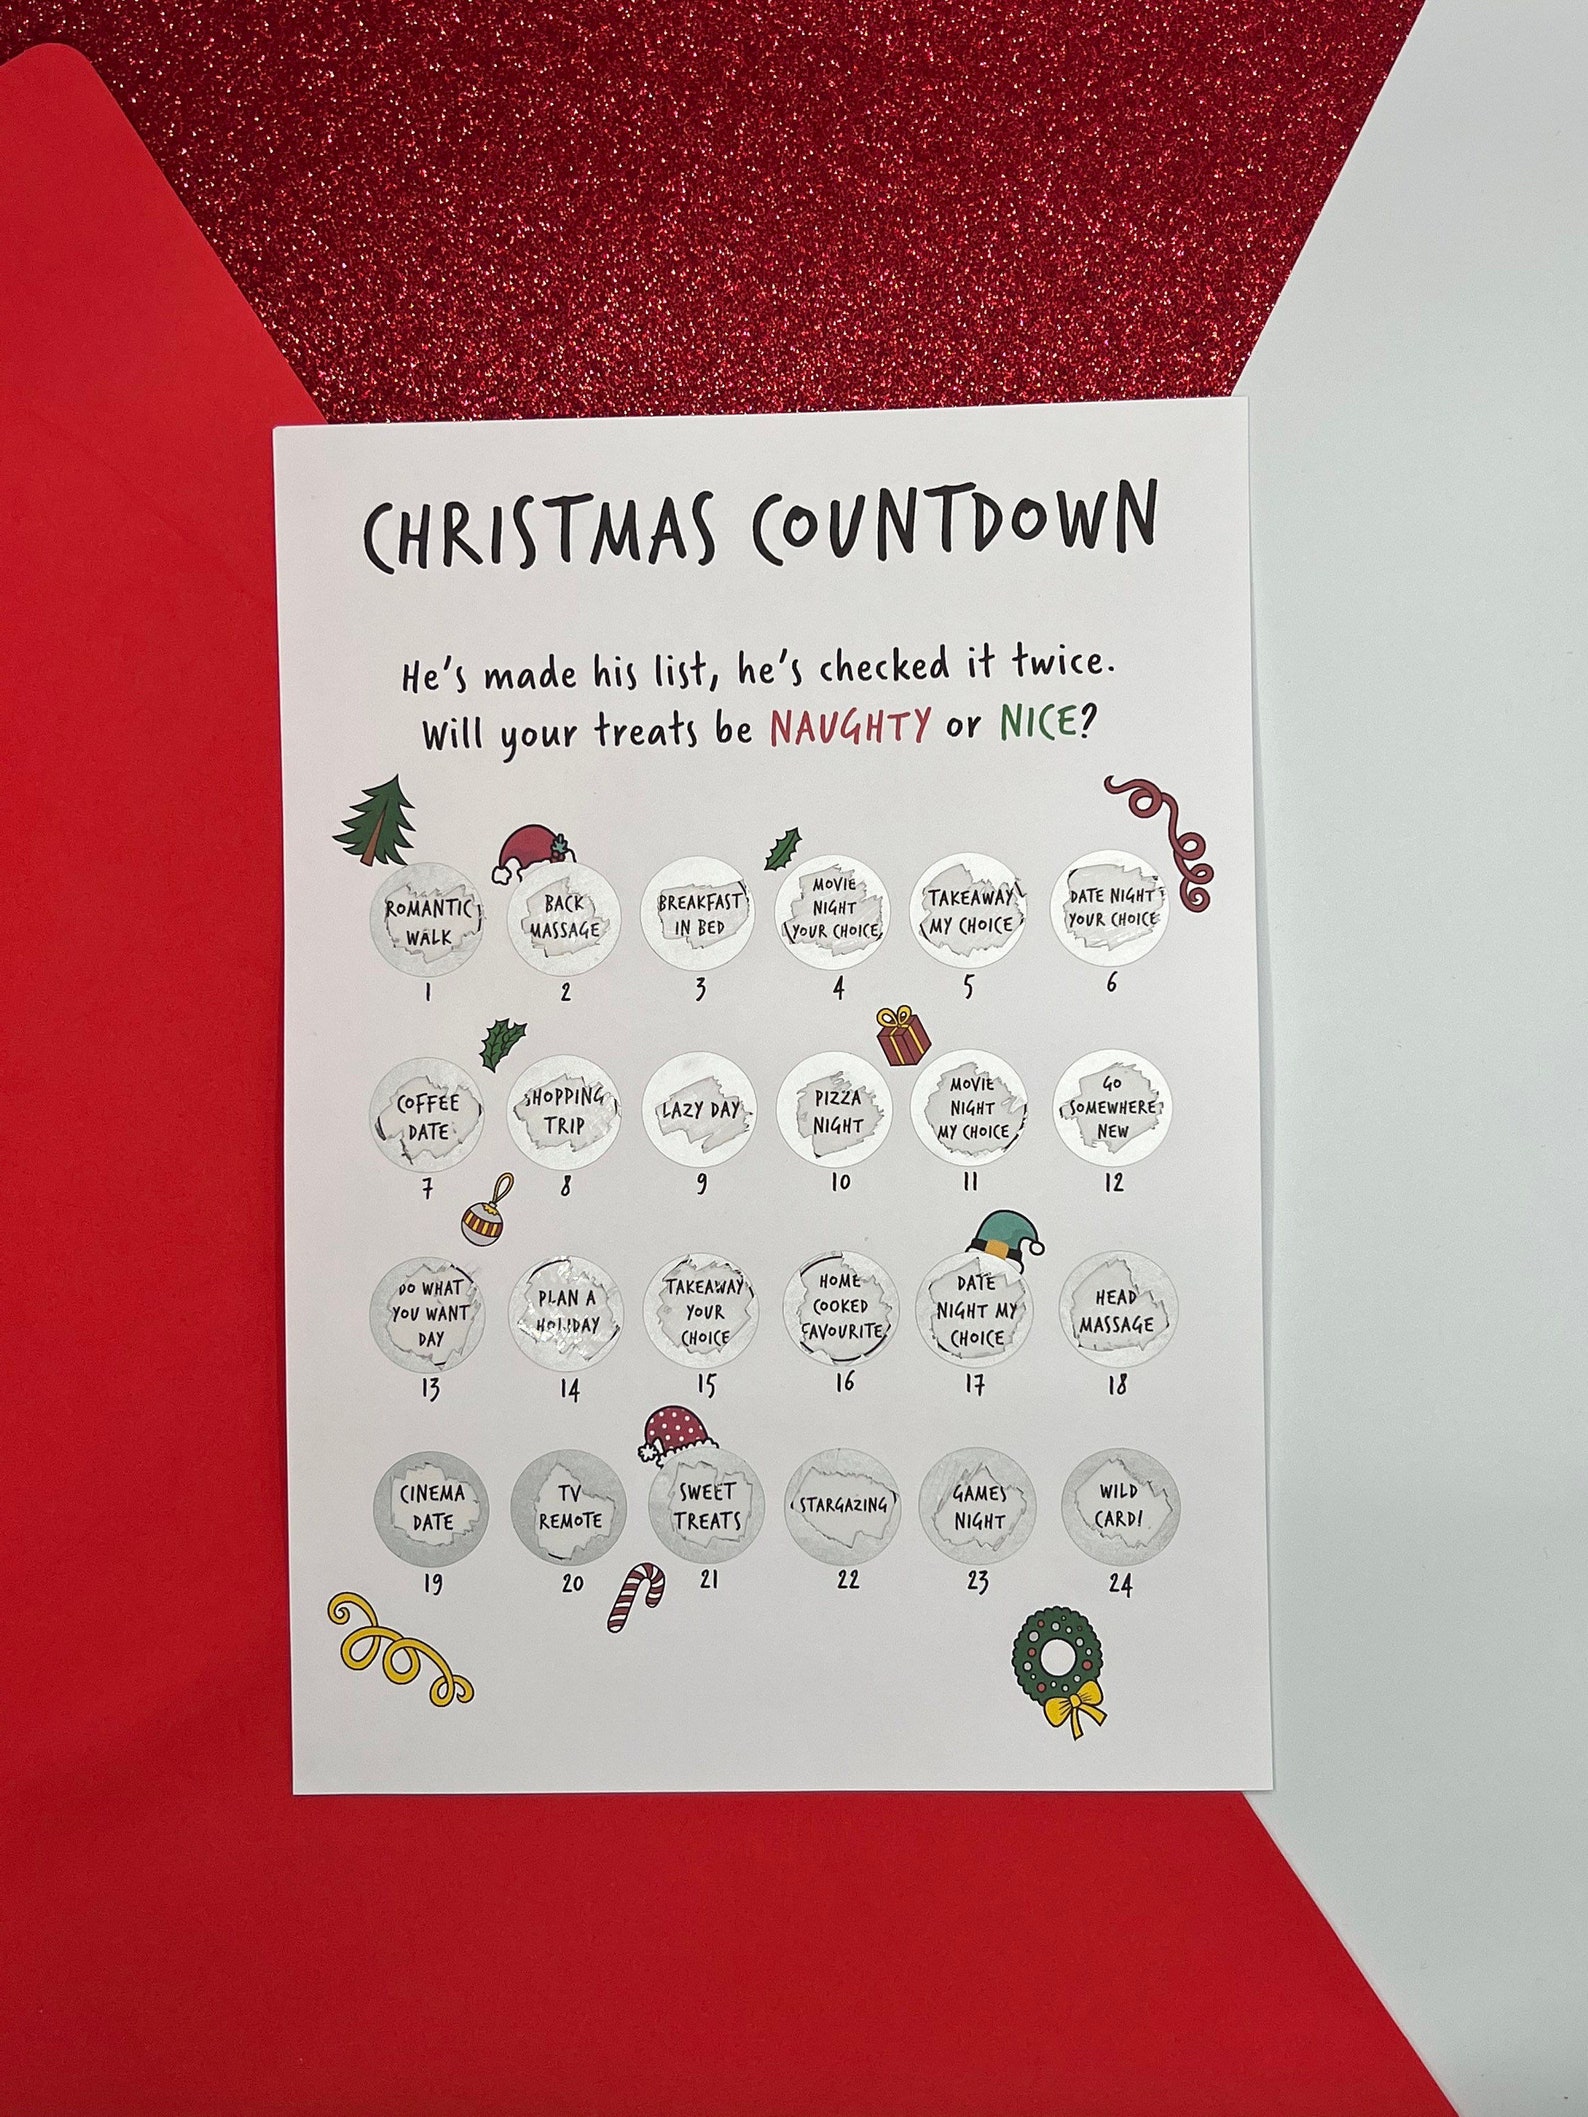 CHRISTMAS COUNTDOWN
He's made his list, he's checked it twice.
Will your treats be NAUGHTY or NICE?
ROMANTIC
WALK
1
BACK
MASSAGE
2
BREAKFAST
IN BED
3
MOVIE
NIGHT
YOUR CHOICE
4
TAKEAWAY
MY CHOICE
5
DATE NIGHT
YOUR CHOICE
6
COFFEE
DATE
7
SHOPPING
TRIP
8
LAZY DAY
9
PIZZA
NIGHT
10
MOVIE
NIGHT
MY CHOICE
11
GO
SOMEWHERE
NEW
12
DO WHAT
YOU WANT
DAY
13
PLAN A
HOLIDAY
14
TAKEAWAY
YOUR
CHOICE
15
HOME
COOKED
FAVOURITE
16
DATE
NIGHT MY
CHOICE
17
HEAD
MASSAGE
18
CINEMA
DATE
19
TV
REMOTE
20
SWEET
TREATS
21
STARGAZING
22
GAMES
NIGHT
23
WILD
CARD!
24